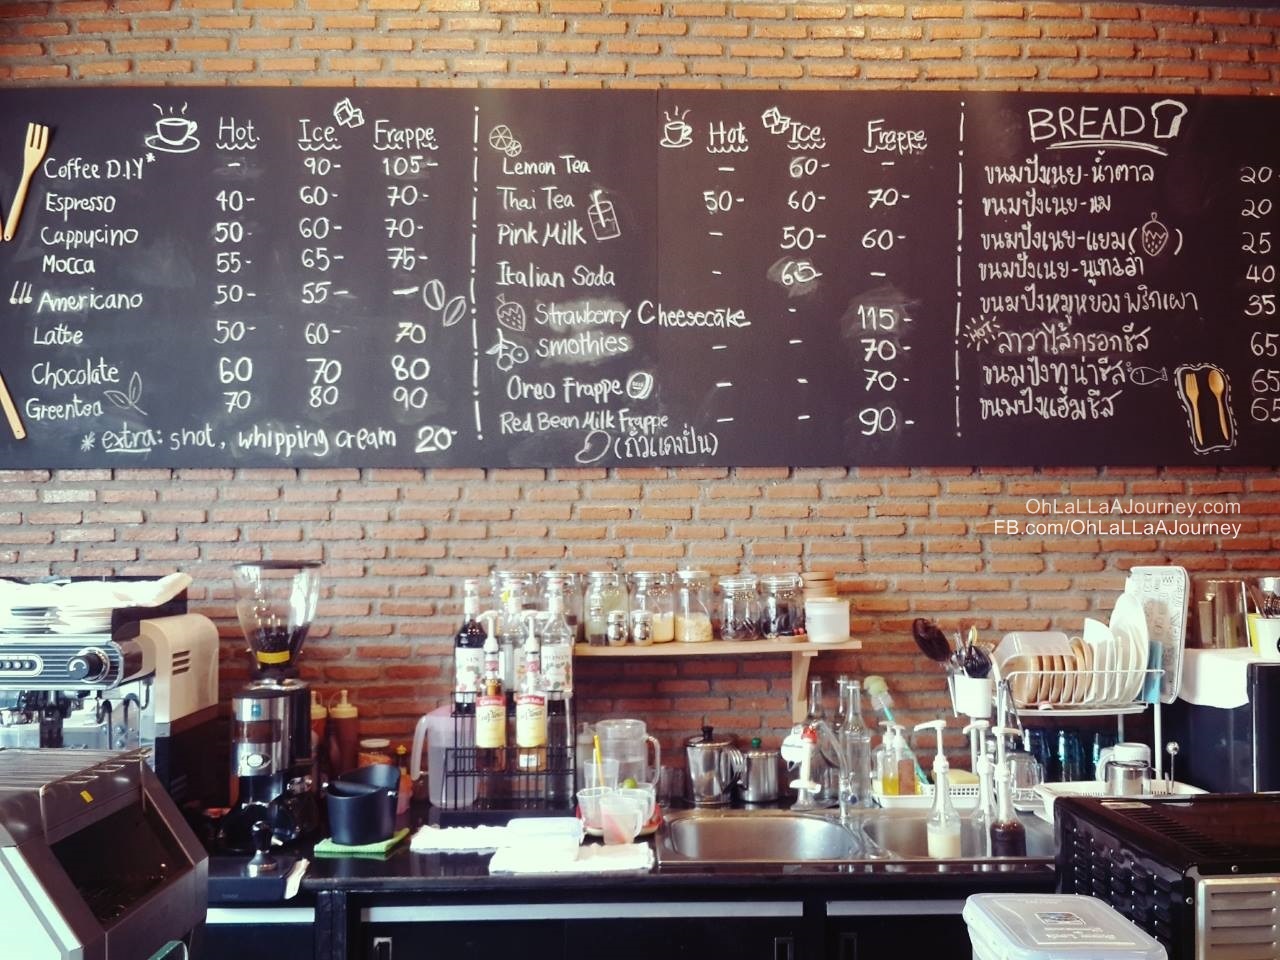 Hot. Ice. Frappe
Coffee D.I.Y* - 90- 105-
Espresso 40- 60- 70-
Cappucino 50- 60- 70-
Mocca 55- 65- 75-
Americano 50- 55- -
Latte 50- 60- 70
Chocolate 60 70 80
Greentea 70 80 90
* extra: shot, whipping cream 20-
Hot Ice. Frappe.
Lemon Tea - 60- -
Thai Tea 50- 60- 70-
Pink Milk - 50- 60-
Italian Soda - 65- -
Strawberry Cheesecake - 115-
Smothies - - 70-
Oreo Frappe - - 70-
Red Bean Milk Frappe - - 90-
(ถั่วแดงปั่น)
BREAD
ขนมปังเนย-น้ำตาล 20
ขนมปังเนย-นม 20
ขนมปังเนย-แยม ( ) 25
ขนมปังเนย-นูเทลล่า 40
ขนมปังหมูหยองพริกเผา 35
HOT ลาวาไส้กรอกชีส 65
ขนมปังทูน่าชีส 65
ขนมปังแฮมชีส 65
OhLaLLaAJourney.com
FB.com/OhLaLLaAJourney